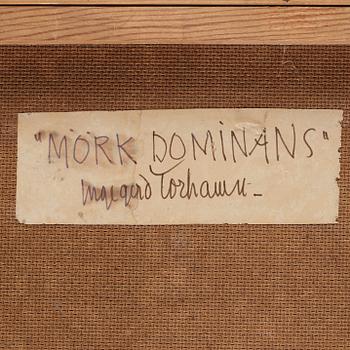 "MÖRK DOMINANS"
Ingegerd Torhamn